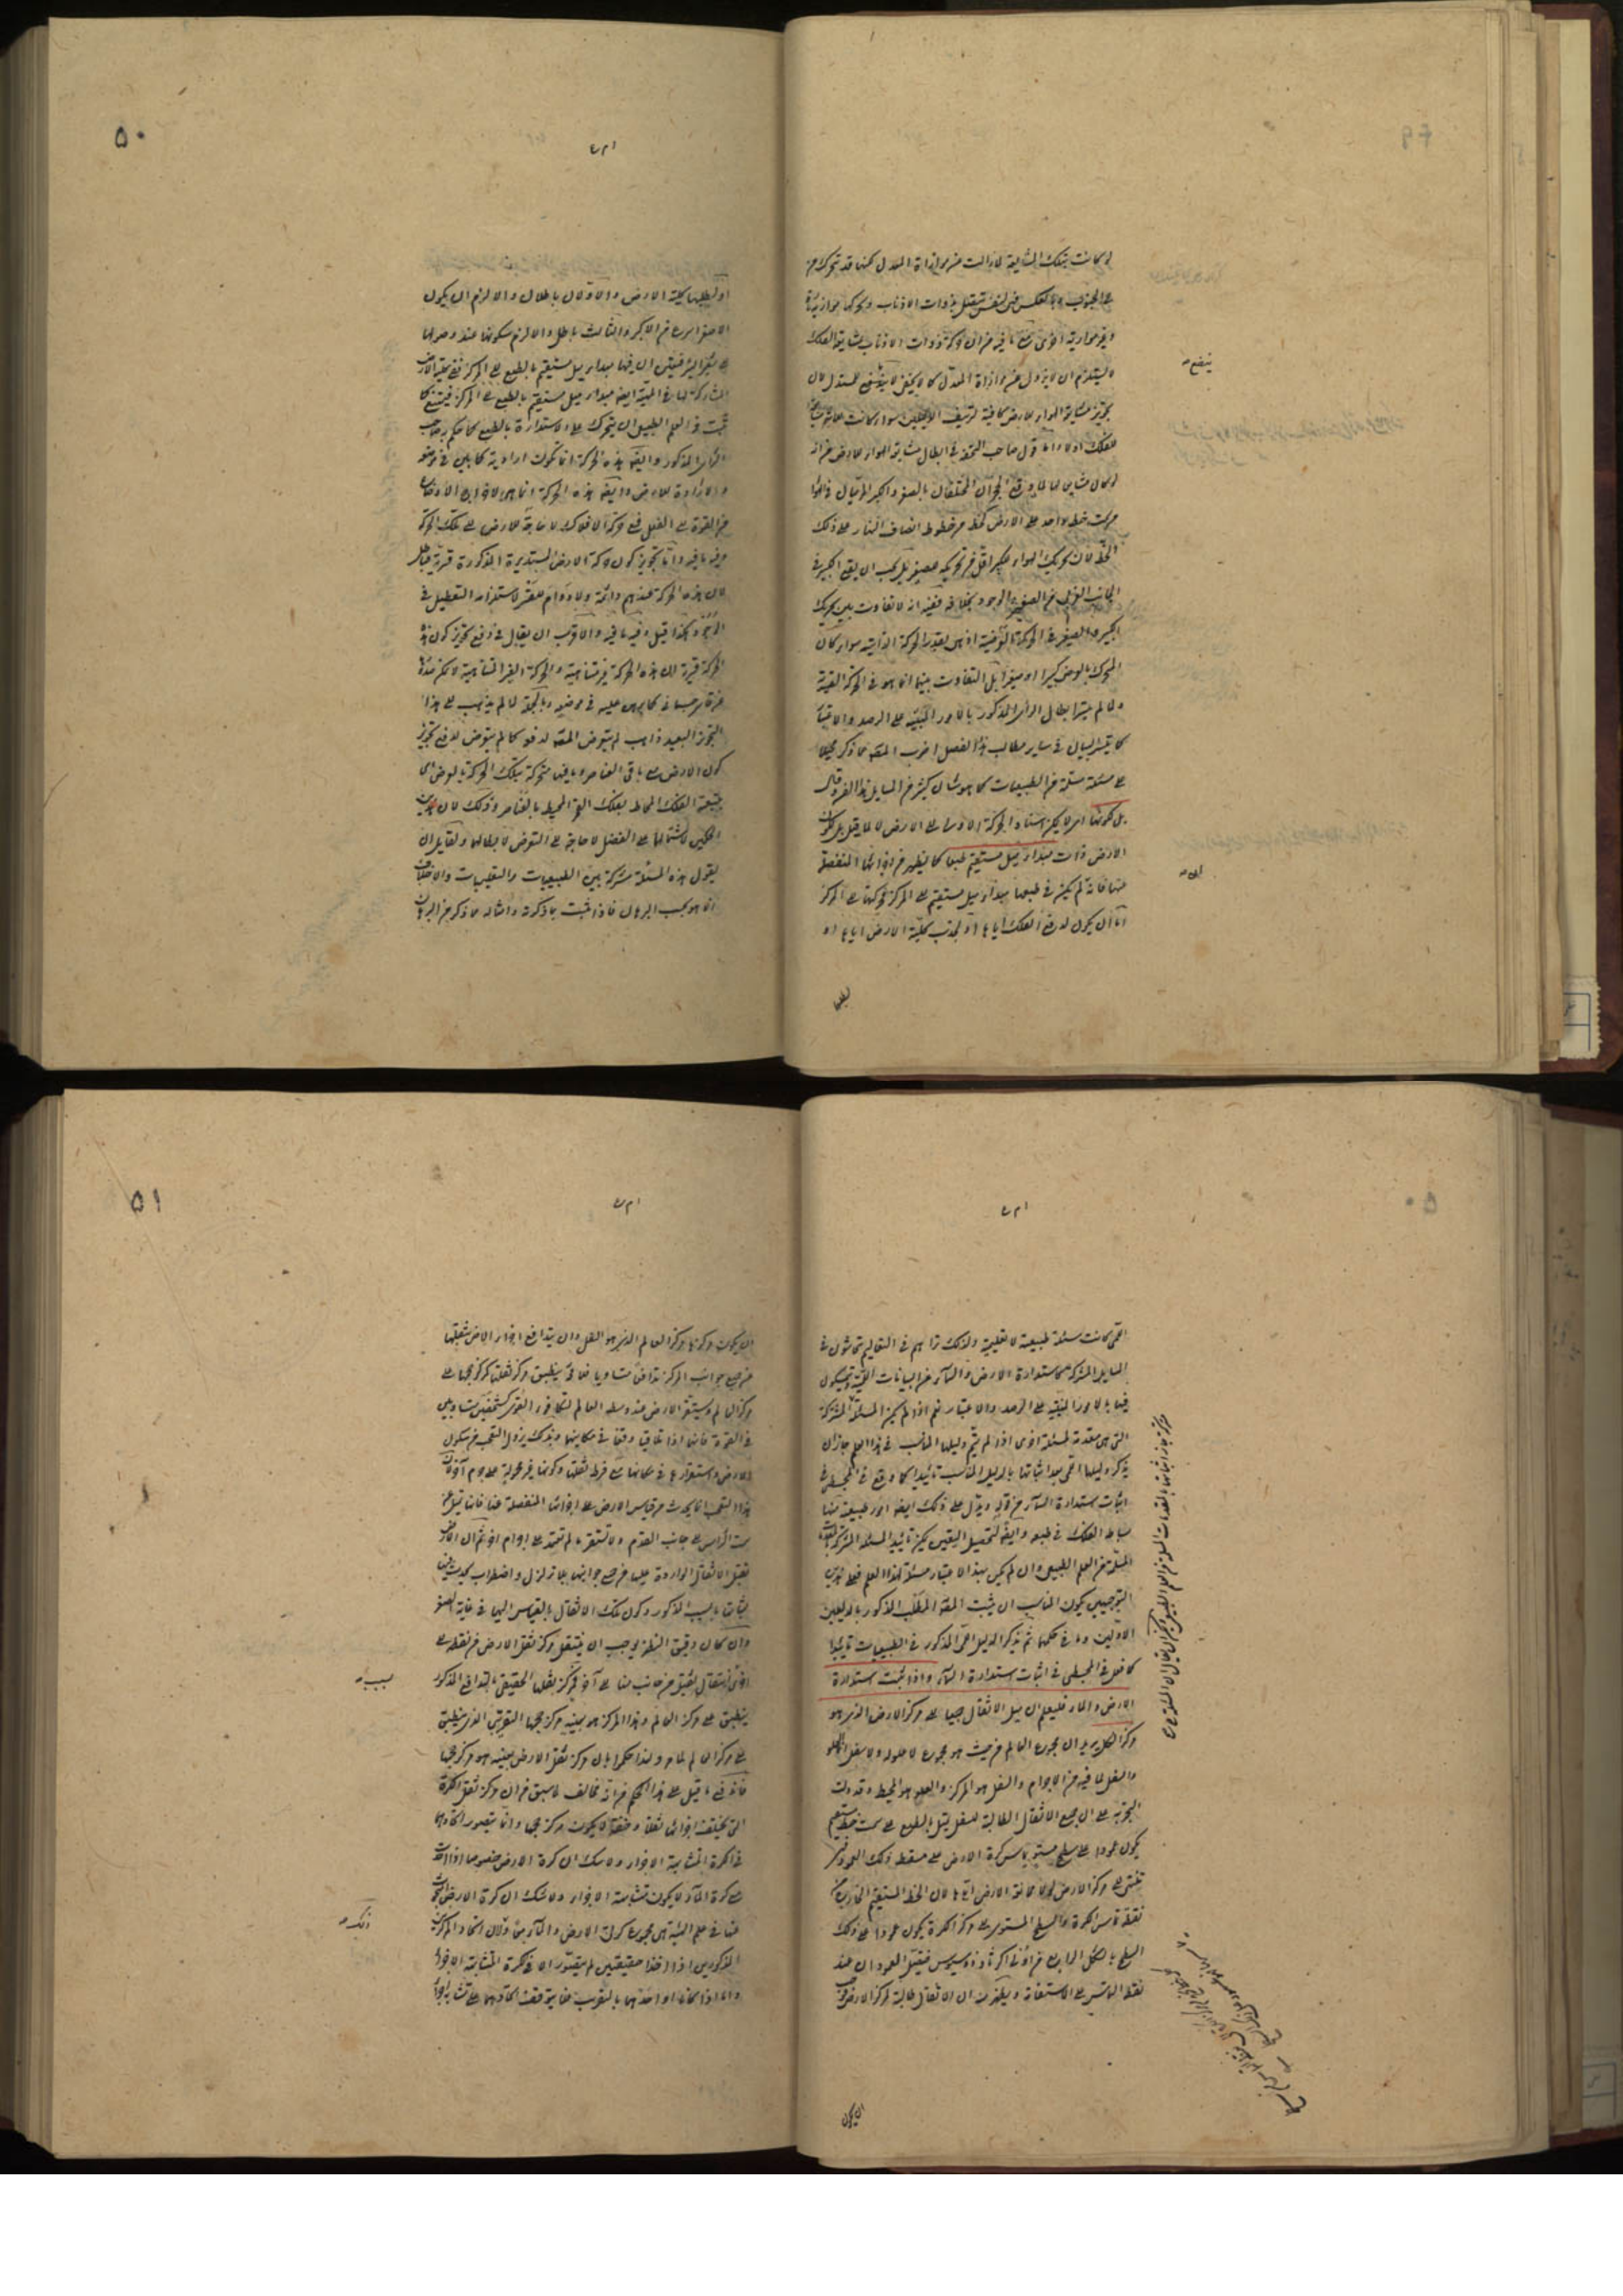 لو كانت بتلك المشايعة لما زالت عن موازاة المعدل لكنها قد تتحرك من
الجنوب وبالعكس
وغير موازية اخرى مع ما فيه من ان حركة ذوات الاذناب بمشايعة الفلك
لا يستلزم ان لا يزول عن موازاة المعدل كما لا يخفى لا ينفع للمستدل لان
تجويز مشايعة الهواء للارض كافية لتزييف الدليلين سواء كانت
للفلك او لا واما قول صاحب التحفة في ابطال مشايعة الهواء للارض من انه
لو كان مشايعا لها لما وقع الحجران المختلفان بالصغر والكبر المرميان في الهواء
من سمت خط واحد على الارض كخط من خطوط انصاف النهار على ذلك
الخط لان تحريك الهواء للكبير اقل من تحريكه للصغير بل يجب ان يقع الكبير في
الجانب الغربى من الصغير والوجود بخلافه ففيه انه لا تفاوت بين تحريك
الكبير والصغير في الحركة العرضية اذ هى بقدر الحركة الذاتية سواء كان
المتحرك بالعرض كبيرا او صغيرا بل التفاوت بينهما انما هو في الحركة القسرية
ولما لم يتيسر ابطال الرأى المذكور بالامور المبنية على الرصد والاعتبار
كما يتيسر البيان في ساير مطالب هذا الفصل اضرب المصنف عما ذكر محيلا
على مسئلة مسلمة من الطبيعيات كما هو شان كثير من المسايل لهذا الفن وقال
بل لكونها اى لا يمكن اسناد الحركة الاولى الى الارض لا لما قيل بل لكون
الارض ذات مبدأ ميل مستقيم طبعا كما يظهر من اجزائها المنفصلة
عنها فانه لو لم يكن في طبعها مبدأ ميل مستقيم الى المركز فحركتها الى المركز
اما ان يكون لدفع الفلك اياها او لجذب كلية الارض اياها او
لطلبها
٥٠
او لطلبها كلية الارض والاولان باطلان والا لزم ان يكون
الاصغر اسرع من الاكبر والثالث باطل والا لزم سكونها عند وصولها
الى شفير البئر فبقى ان فيها مبدأ ميل مستقيم بالطبع الى المركز ففى كلية الارض
المشاركة لها في المهية ايضا مبدأ ميل مستقيم بالطبع الى المركز فيمتنع كما
ثبت في العلم الطبيعى ان يتحرك على الاستدارة بالطبع كما حكم به صاحب
الرأى المذكور وايضا هذه الحركة انما تكون ارادية كما بين في موضعه
ولا ارادة للارض وايضا هذه الحركة انما هى لاخراج الاوضاع
من القوة الى الفعل ففى حركة الافلاك لا حاجة للارض الى تلك الحركة
وفيه ما فيه واما تجويز كون حركة الارض المستديرة المذكورة قسرية فباطل
لان هذه الحركة عندهم دائمة ولا دوام للقسر لاستلزامه التعطيل في
الوجود هكذا قيل وفيه ما فيه والاقرب ان يقال في دفع تجويز كون هذه
الحركة قسرية ان هذه الحركة غير متناهية والحركة الغير المتناهية لا يمكن صدورها
عن قاسر جسمانى كما برهن عليه في موضعه وبالجملة لما لم يذهب الى هذا
التجويز البعيد ذاهب لم يتعرض المصنف لدفعه كما لم يتعرض لدفع تجويز
كون الارض مع باقى العناصر وما فيها متحركة بتلك الحركة بالعرض اى
بتبعية الفلك المحاط بفلك البروج المحيط بالعناصر وذلك لان هذين
الحكمين
يقول هذه المسئلة مشتركة بين الطبيعيات والتعليميات والاختلاف
انما هو بحسب البرهان فاذا اثبت بما ذكرته وامثاله مما ذكر من البرهان
اللمى كانت مسئلة طبيعية لا تعليمية ولذلك تراهم في التعاليم يتحاشون في
المسايل المشتركة كاستدارة الارض والسماء عن البيانات اللمية ويتمسكون
فيها بالامور المبنية على الرصد والاعتبار نعم اذا لم يكن المسئلة المشتركة
التى هى مقدمة لمسئلة اخرى اذا لم يتم دليلها المناسب في هذا العلم جاز ان
يذكر دليلها اللمى بعد اثباتها بالدليل المناسب تاييدا كما وقع في المجسطى في
اثبات استدارة السماء من قوله ويدل على ذلك ايضا امور طبيعية منها
بساطة الفلك في طبعه وايضا لتحصيل اليقين يمكن تاييد المسئلة المشتركة
المسلمة من العلم الطبيعى وان لم يكن بهذا الاعتبار مسئلة لهذا العلم فعلى هذين
التوجيهين يكون المناسب ان يثبت المصنف المطلب المذكور بالدليلين
الاولين وما في حكمهما ثم يذكر الدليل اللمى المذكور في الطبيعيات تاييدا
كما فعل في المجسطى في اثبات استدارة السماء واذا ثبت استدارة
الارض والماء فليعلم ان ميل الاثقال جميعا الى مركز الارض الذى هو
مركز الكل يريد ان مجموع العالم من حيث هو مجموع لا علو له ولا سفل بل العلو
والسفل لما فيه من الاجرام والسفل هو المركز والعلو هو المحيط وقد دلت
التجربة على ان جميع الاثقال الطالبة للسفل يميل بالطبع الى سمت خط مستقيم
يكون عمودا على سطح مستو يماس كرة الارض على مسقط ذلك العمود
تلتقى على مركز الارض لولا ممانعة الارض اياها لان الخط المستقيم الخارج من
نقطة تماس الكرة والسطح المستوى الى مركز الكرة يكون عمودا على ذلك
السطح بالشكل الرابع من اولى اكر ثاوذوسيوس فيتصل العمودان عند
نقطة التماس على الاستقامة ويظهر منه ان الاثقال طالبة لمركز الارض فيجب
ان يكون
٥١
ان يكون مركزها مركز العالم الذى هو السفل وان يتدافع اجزاء الارض بثقلها
من جميع جوانب المركز تدافعا متساويا فلا محالة ينطبق مركز ثقلها كمركز حجمها على
مركز العالم ويستقر الارض عند وسط العالم لتكافؤ القوى كشخصين متساويين
في القوة فانهما اذا تدافعا وقفا في مكانهما وبذلك يزول التعجب من سكون
الارض واستقرارها في مكانها مع فرط ثقلها وكونها غير محمولة على جرم آخر فان
هذا التعجب انما يحدث من قياس الارض على اجزائها المنفصلة عنها فانها تميل من
سمت الرأس الى جانب القدم ولا تستقر ما لم تعتمد على اجرام اخر ثم ان الارض
تقبل الاثقال الواردة عليها من جميع جوانبها بلا تزلزل واضطراب
لثباتها بالسبب المذكور وكون تلك الاثقال بالقياس اليها في غاية الصغر
وان كان دقيق النظر يوجب ان ينتقل مركز ثقل الارض من نقطة الى
اخرى بانتقال ثقيل من جانب منها الى آخر فمركز ثقلها الحقيقى بالتدافع المذكور
ينطبق على مركز العالم وهذا المركز هو بعينه مركز حجمها التقريبى الذى ينطبق
على مركز العالم لما مر ولذا حكموا بان مركز ثقل الارض بعينه هو مركز حجمها
فاندفع ما قيل على هذا الحكم من انه مخالف لما سبق من ان مركز ثقل الكرة
التى يختلف اجزائها ثقلا وخفة لا يكون مركز حجمها وانما يتصور اتحادهما
في الكرة المتشابهة الاجزاء ولا شك ان كرة الارض خصوصا اذا اخذت
مع كرة الماء لا يكون متشابهة الاجزاء ولا شك ان كرة الارض
عنها في علم الهيئة هى مجموع كرتى الارض والماء وذلك لان اتحاد المركزين
المذكورين اذا اخذا حقيقيين لم يتصور الا في الكرة المتشابهة الاجزاء
واما اذا كانا او احدهما بالتقريب فلا يتوقف اتحادهما على تشابه الاجزاء